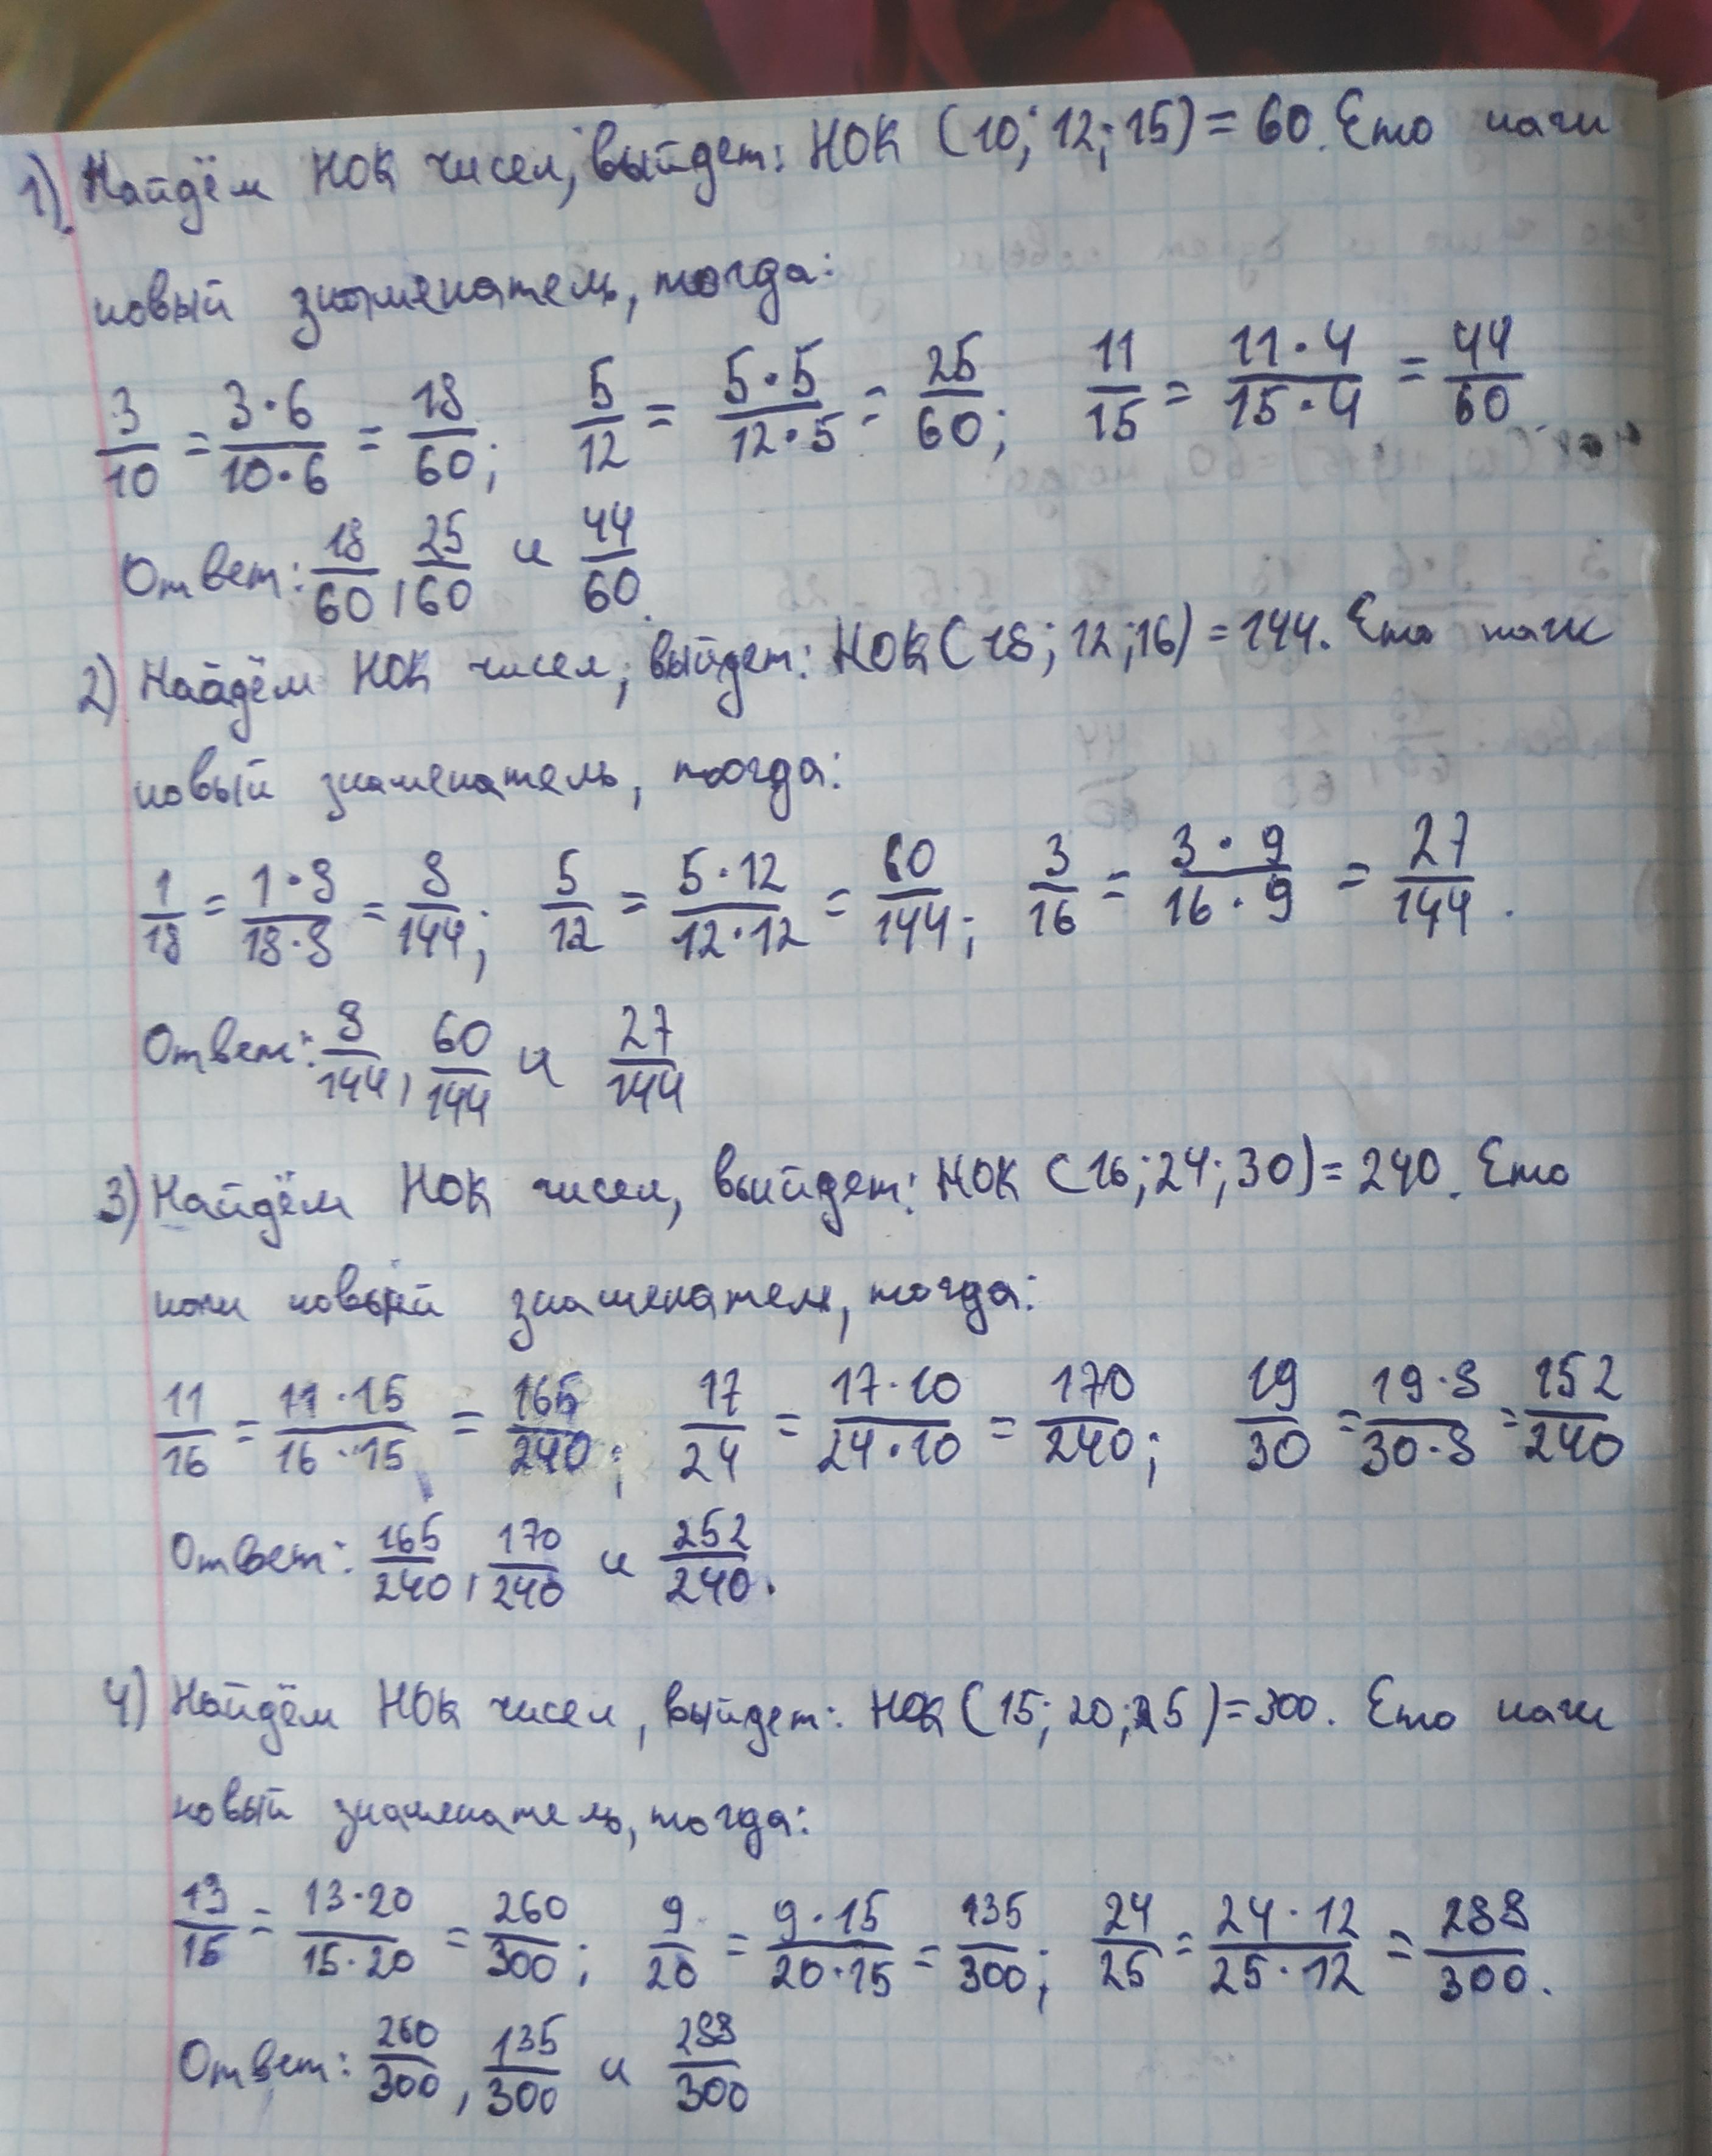 1) Найдём НОК чисел, выйдет: НОК (10; 12; 15) = 60. Ето наш
новый знаменатель, тогда:
3/10 = 3·6/10·6 = 18/60; 5/12 = 5·5/12·5 = 25/60; 11/15 = 11·4/15·4 = 44/60
Ответ: 18/60, 25/60 и 44/60.
2) Найдём НОК чисел, выйдет: НОК (18; 12; 16) = 144. Ето наш
новый знаменатель, тогда:
1/18 = 1·8/18·8 = 8/144; 5/12 = 5·12/12·12 = 60/144; 3/16 = 3·9/16·9 = 27/144.
Ответ: 8/144, 60/144 и 27/144
3) Найдём НОК чисел, выйдет: НОК (16; 24; 30) = 240. Ето
наш новый знаменатель, тогда:
11/16 = 11·15/16·15 = 165/240; 17/24 = 17·10/24·10 = 170/240; 19/30 = 19·8/30·8 = 152/240
Ответ: 165/240, 170/240 и 252/240.
4) Найдём НОК чисел, выйдет: НОК (15; 20; 25) = 300. Ето наш
новый знаменатель, тогда:
13/15 = 13·20/15·20 = 260/300; 9/20 = 9·15/20·15 = 135/300; 24/25 = 24·12/25·12 = 288/300.
Ответ: 260/300, 135/300 и 288/300